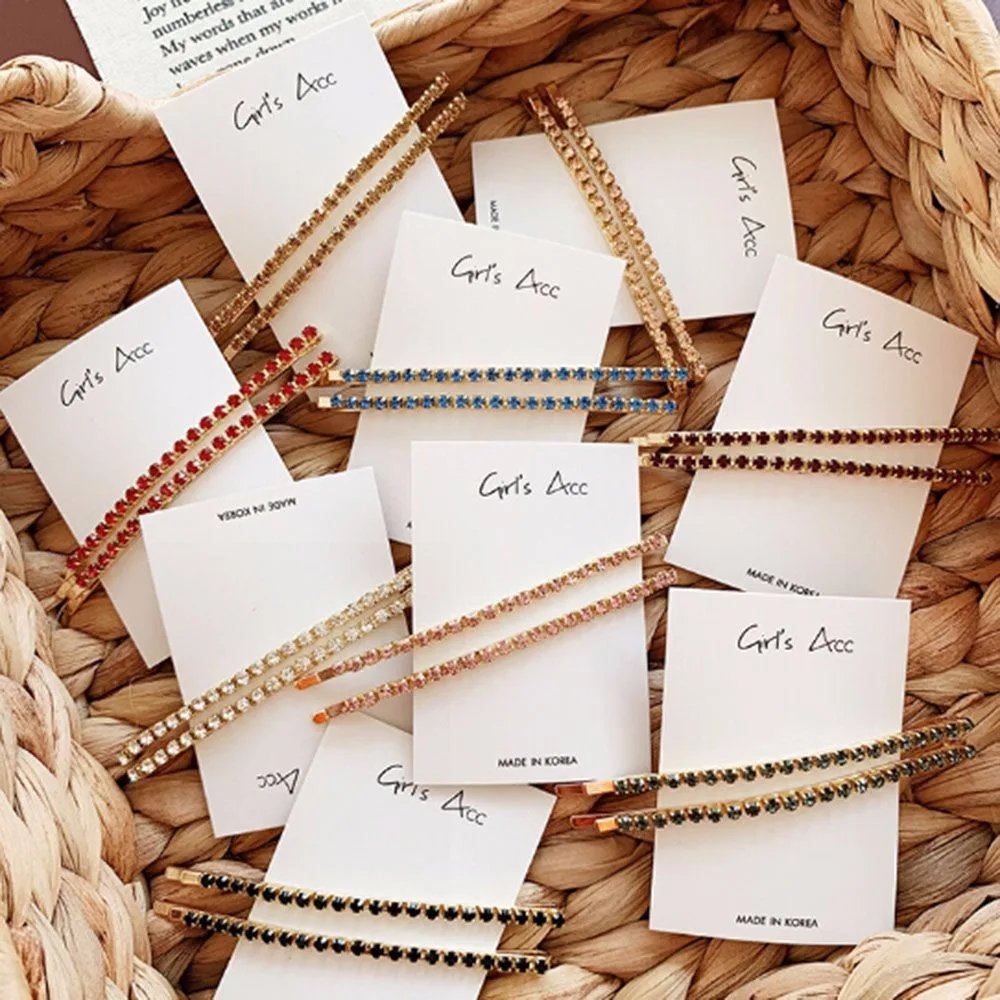 Joy
numberless
My words that are
waves when my
Girl's Acc
Girl's Acc
MADE
Girl's Acc
Girl's Acc
Girl's Acc
MADE IN KOREA
Girl's Acc
MADE IN KOREA
MADE IN KOREA
Acc
Girl's Acc
MADE IN KOREA
Girl's Acc